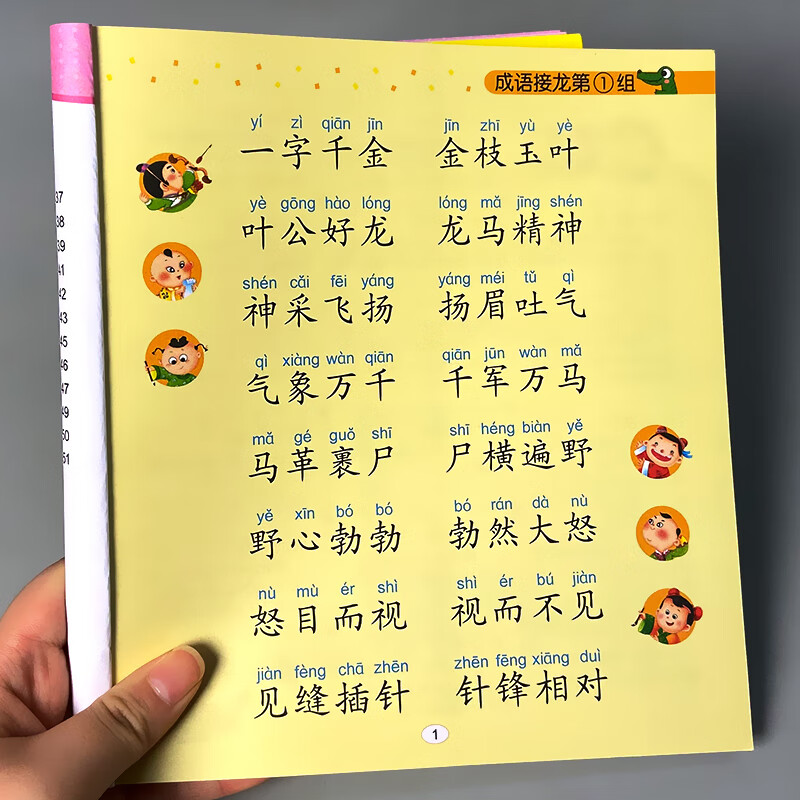 成语接龙第①组
yí zì qiān jīn jīn zhī yù yè
一字千金 金枝玉叶
yè gōng hào lóng lóng mǎ jīng shén
叶公好龙 龙马精神
shén cǎi fēi yáng yáng méi tǔ qì
神采飞扬 扬眉吐气
qì xiàng wàn qiān qiān jūn wàn mǎ
气象万千 千军万马
mǎ gé guǒ shī shī héng biàn yě
马革裹尸 尸横遍野
yě xīn bó bó bó rán dà nù
野心勃勃 勃然大怒
nù mù ér shì shì ér bú jiàn
怒目而视 视而不见
jiàn fèng chā zhēn zhēn fēng xiāng duì
见缝插针 针锋相对
1
37
38
39
41
42
43
45
46
47
49
50
51